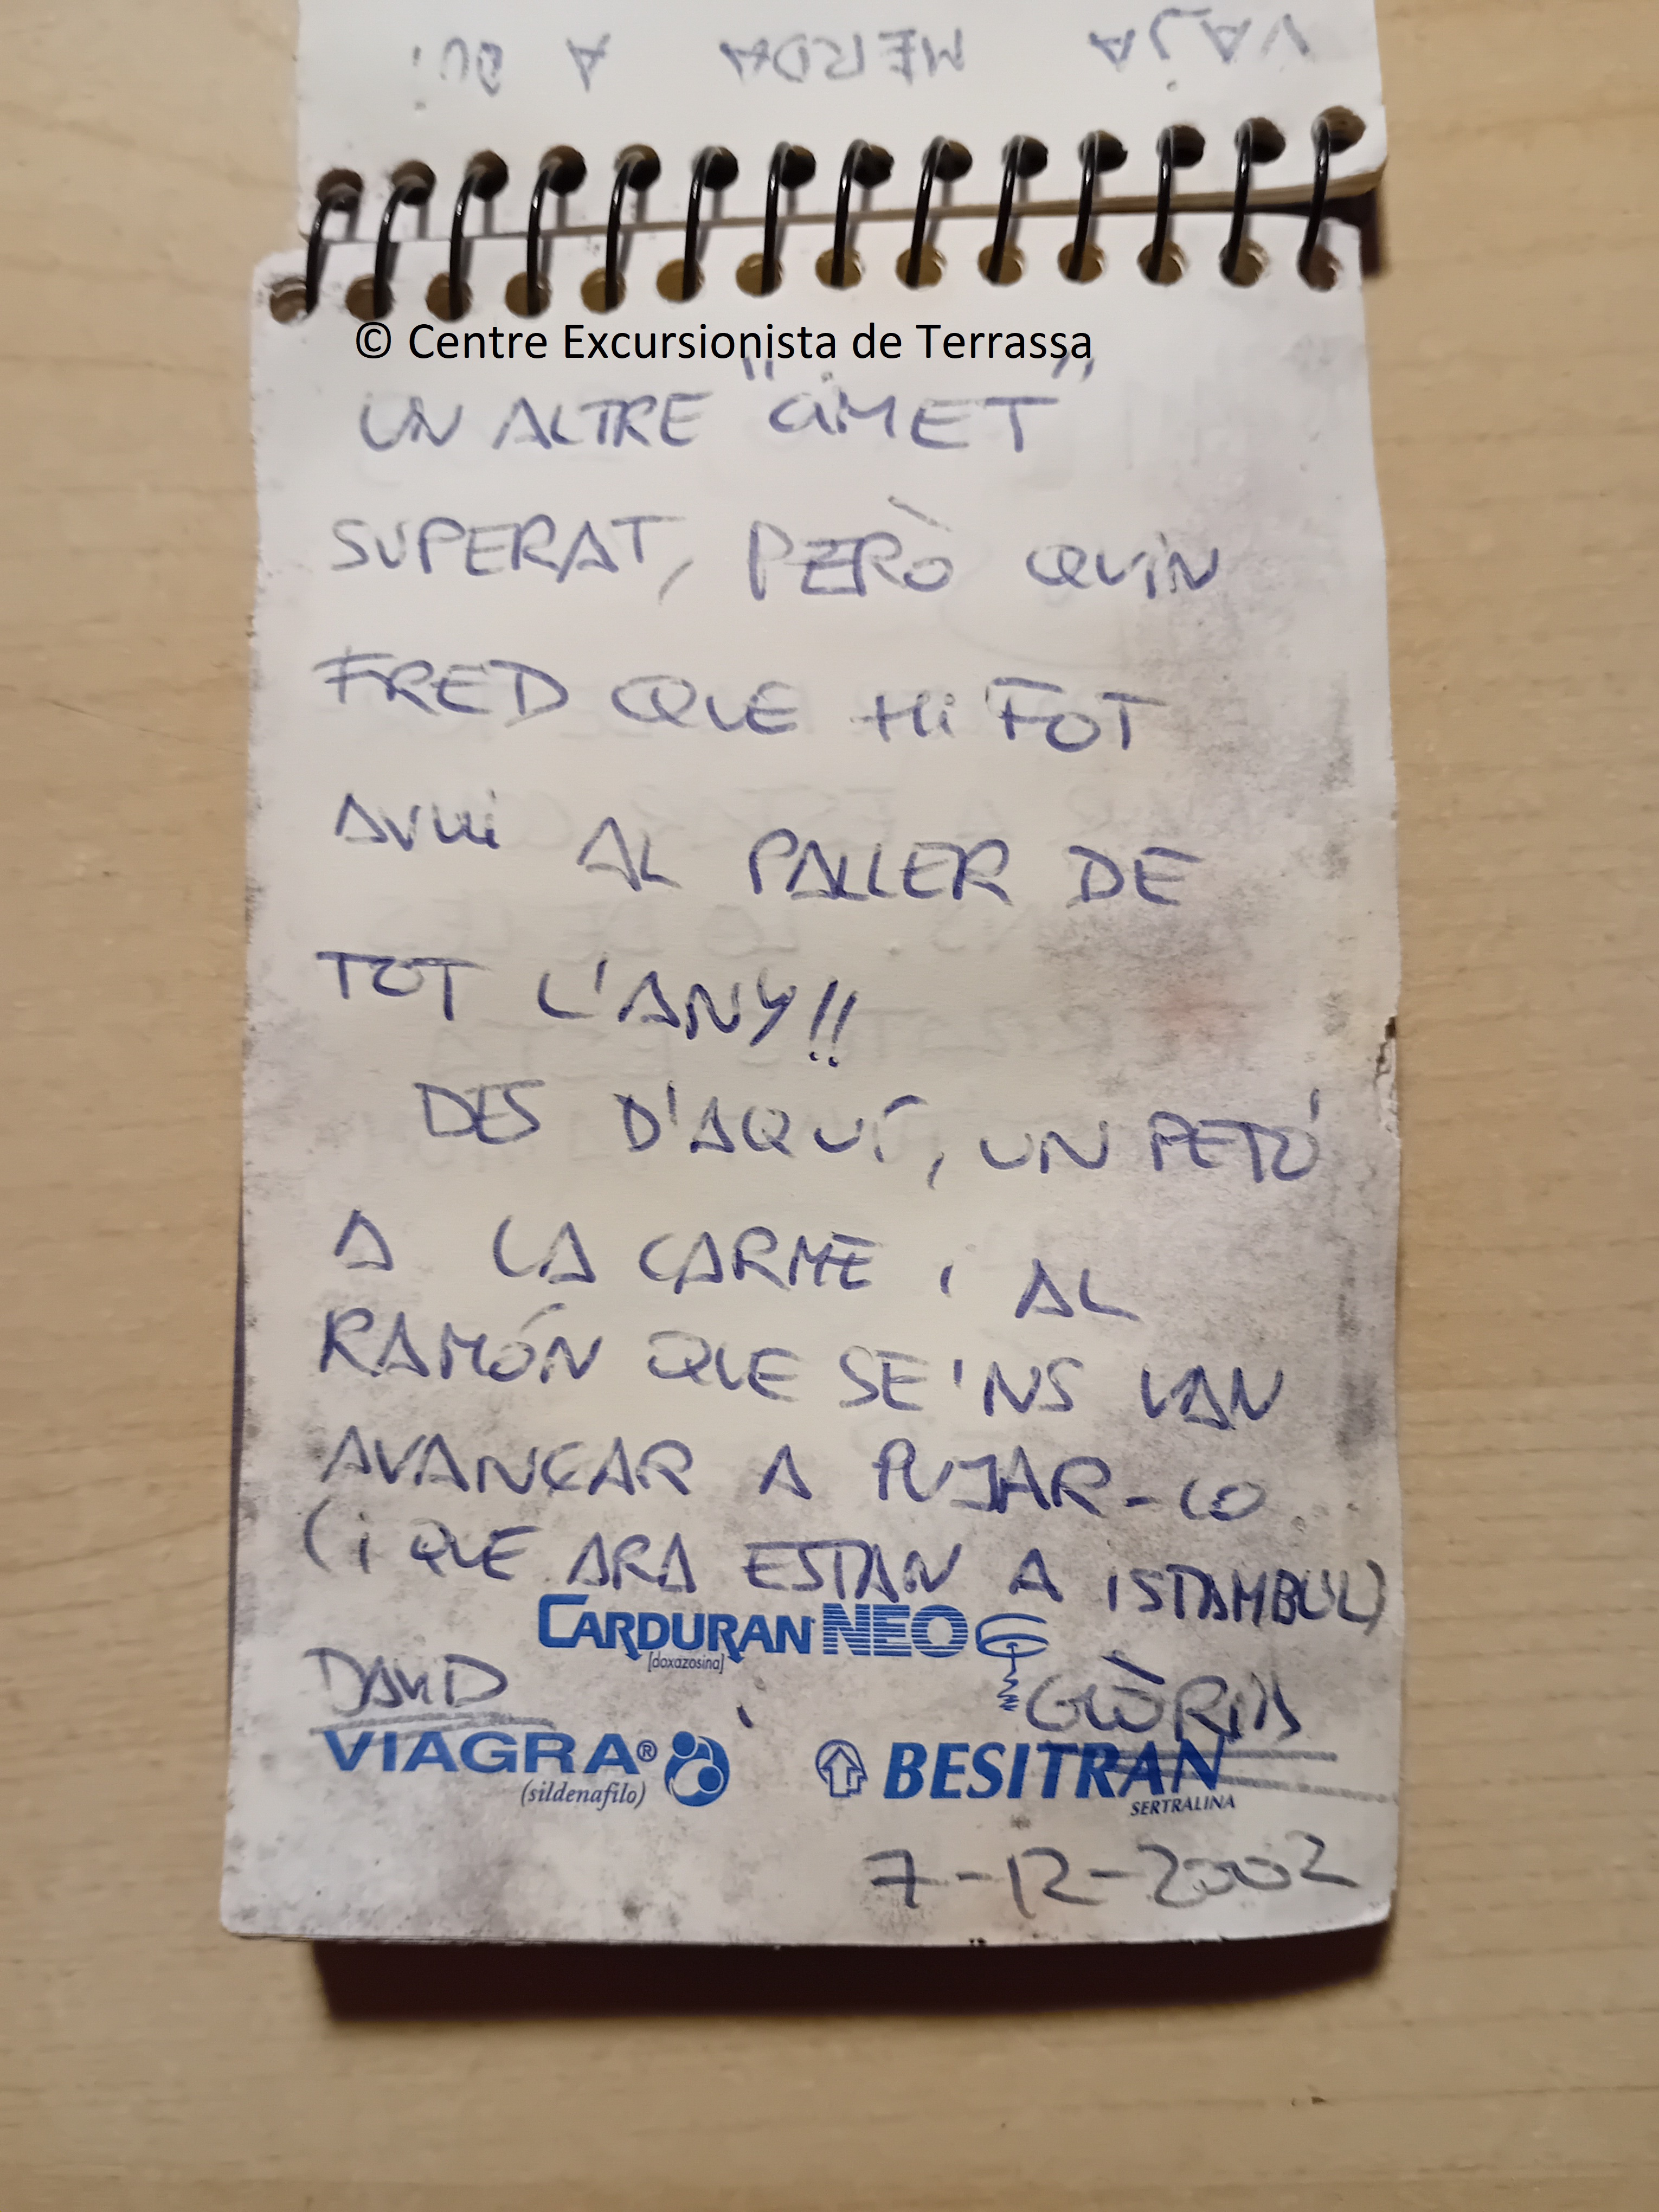 VAJA MERDA A
© Centre Excursionista de Terrassa
UN ALTRE "CIMET"
SUPERAT, PERÒ QUIN
FRED QUE HI FOT
AVUI AL PALLER DE
TOT L'ANY!!
DES D'AQUÍ, UN PETÓ
A LA CARME i AL
RAMÓN QUE SE'NS VAN
AVANÇAR A PUJAR-LO
(i QUE ARA ESTAN A ISTAMBUL)
CARDURAN NEO
[doxazosina]
DAVID i GLÒRIA
VIAGRA® BESITRAN
(sildenafilo) SERTRALINA
7-12-2002